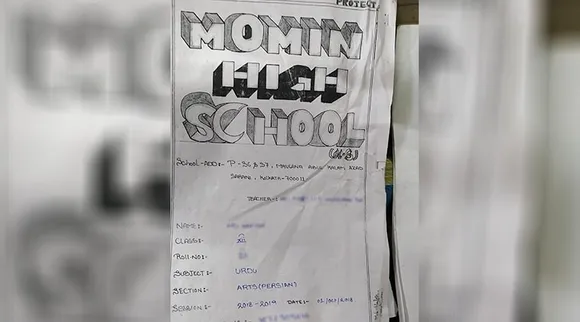 PROJECT
MOMIN
HIGH
SCHOOL
(H.S.)
SCHOOL-ADD:- P-36 & 37, MAULANA ABUL KALAM AZAD
SARANI, KOLKATA-700011
TEACHER:-
NAME:-
CLASS:-
ROLL-NO:-
SUBJECT:- URDU
SECTION:- ARTS(PERSIAN)
SESSION:- 2018-2019 DATE:-